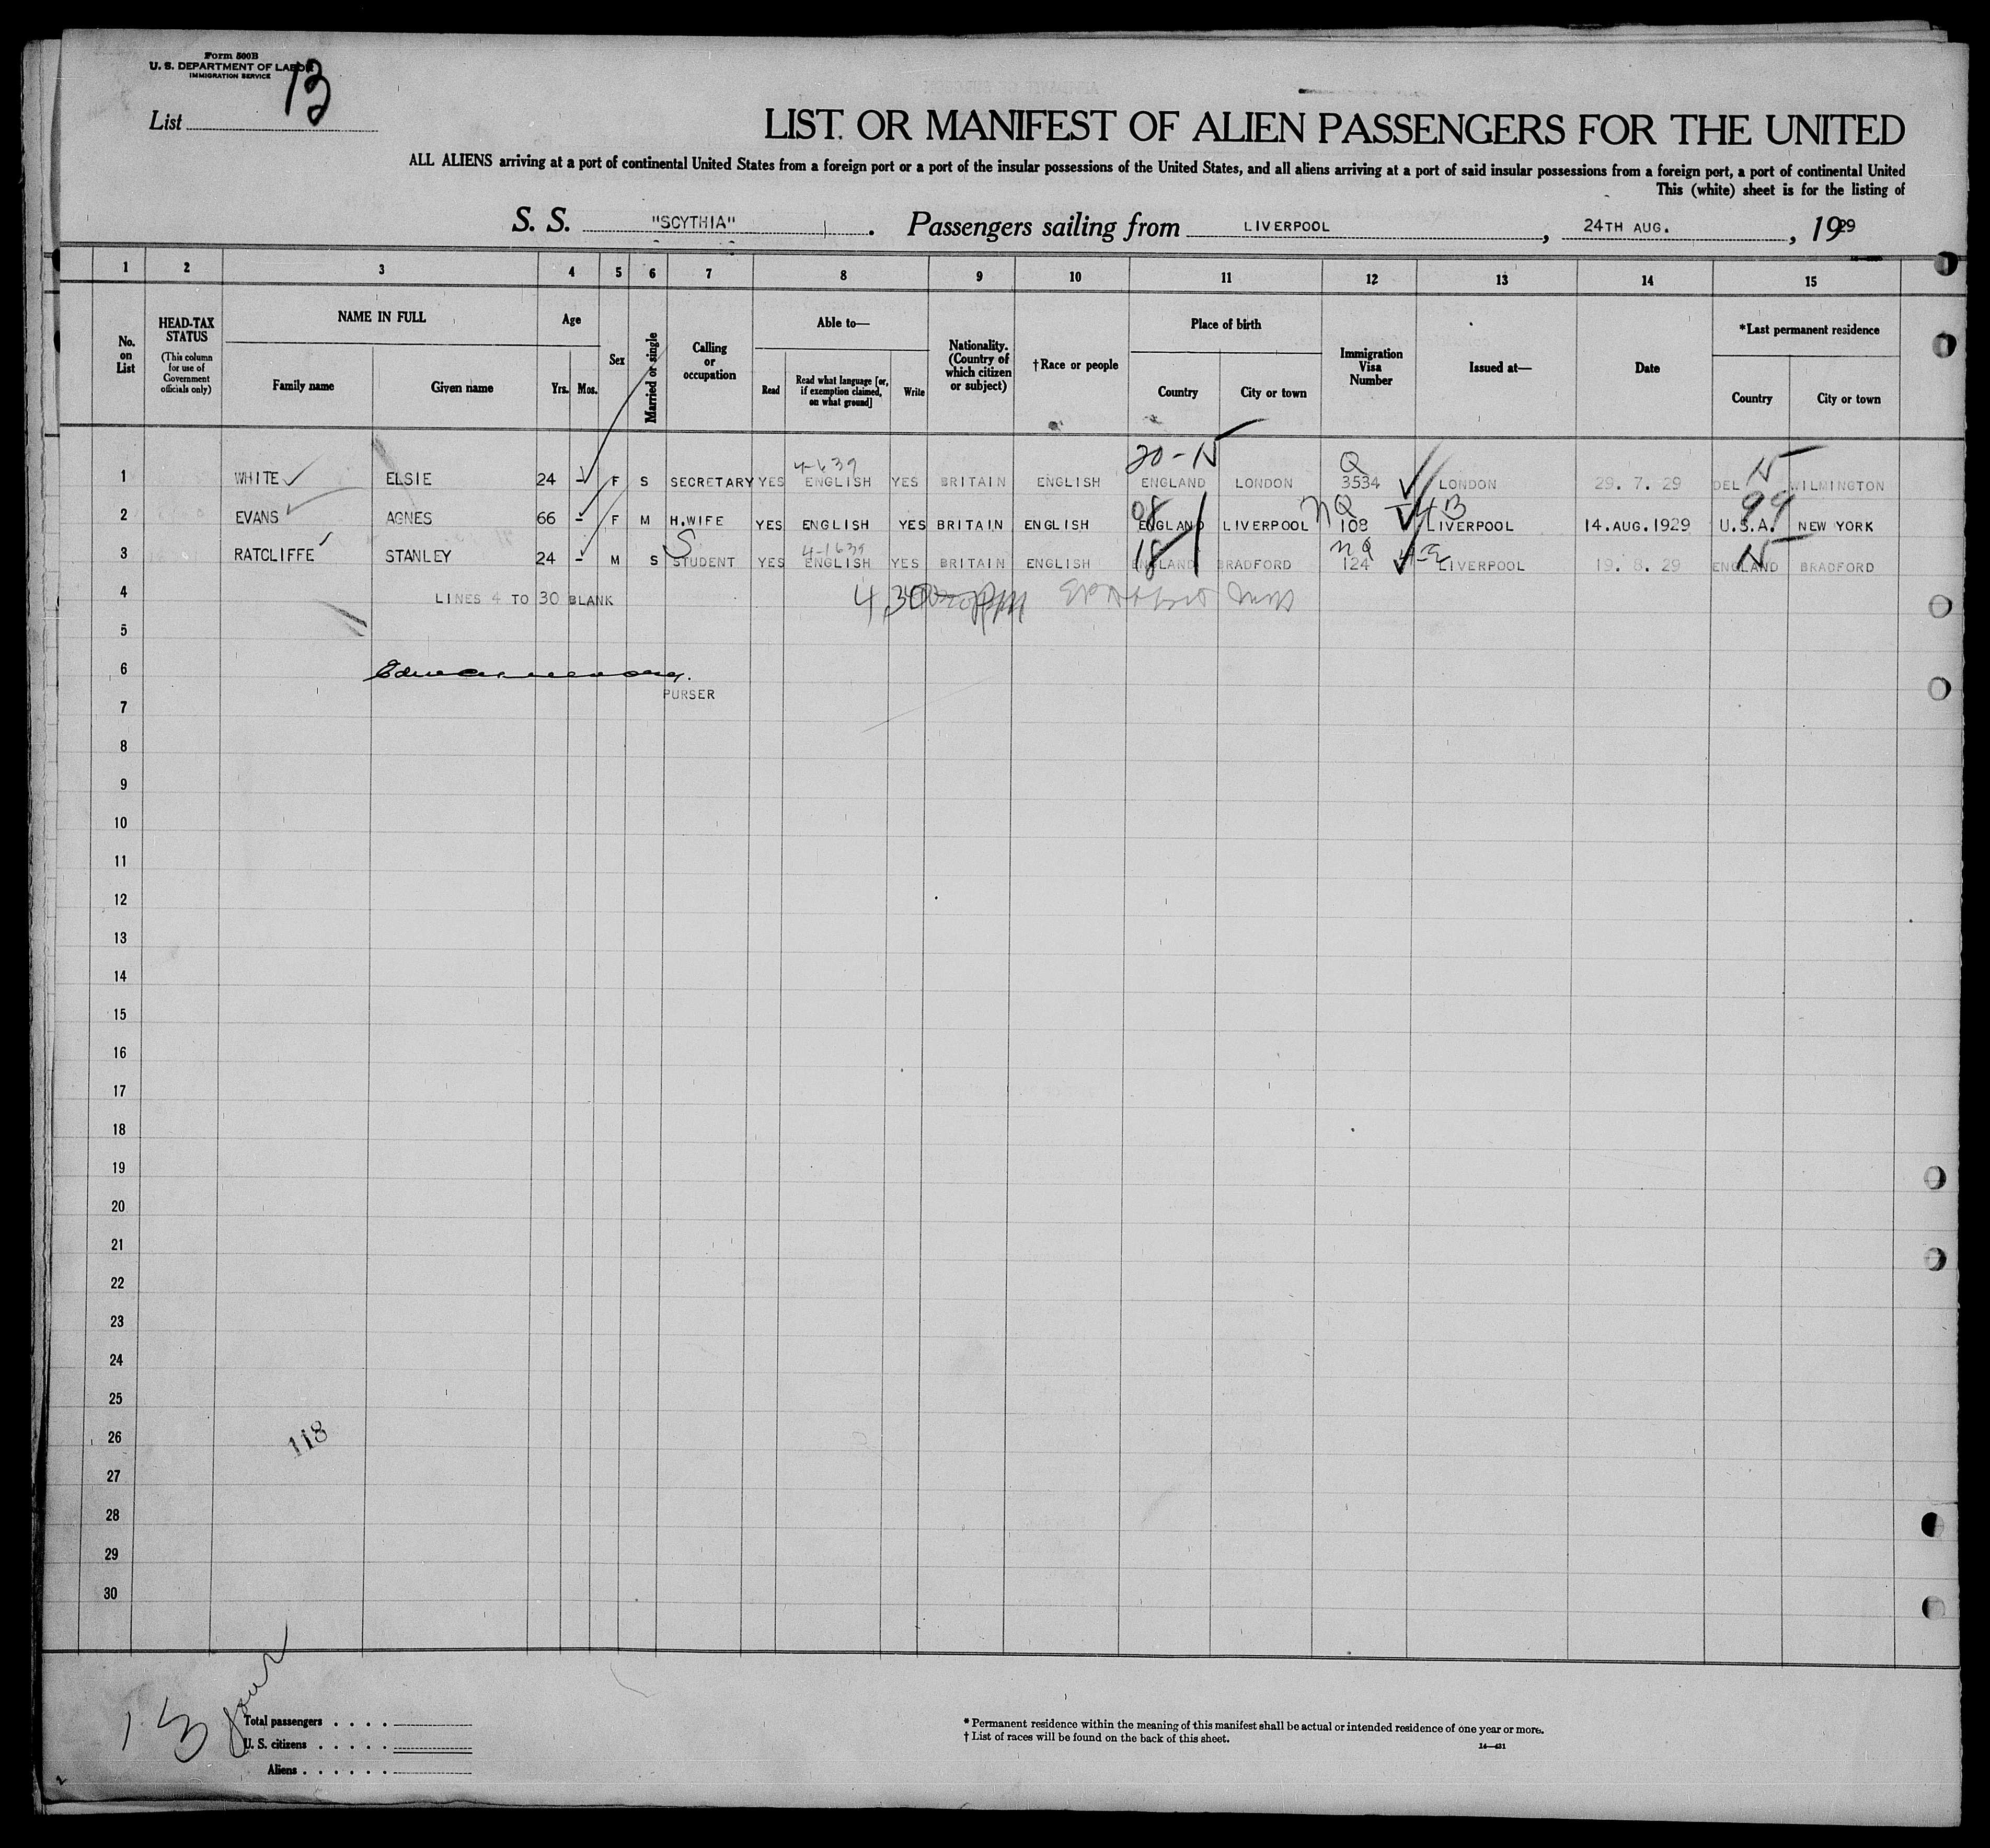 Form 500B
U. S. DEPARTMENT OF LABOR
IMMIGRATION SERVICE
List 13
LIST OR MANIFEST OF ALIEN PASSENGERS FOR THE UNITED
ALL ALIENS arriving at a port of continental United States from a foreign port or a port of the insular possessions of the United States, and all aliens arriving at a port of said insular possessions from a foreign port, a port of continental United
This (white) sheet is for the listing of
S. S. "SCYTHIA". Passengers sailing from LIVERPOOL, 24TH AUG., 1929
1 2 3 4 5 6 7 8 9 10 11 12 13 14 15
No. on List
HEAD-TAX STATUS
(This column for use of Government officials only)
NAME IN FULL
Family name Given name
Age
Yrs. Mos.
Sex
Married or single
Calling or occupation
Able to—
Read
Read what language [or, if exemption claimed, on what ground]
Write
Nationality. (Country of which citizen or subject)
†Race or people
Place of birth
Country City or town
Immigration Visa Number
Issued at—
Date
*Last permanent residence
Country City or town
20-15 Q 15
4-639
1 WHITE ELSIE 24 - F S SECRETARY YES ENGLISH YES BRITAIN ENGLISH ENGLAND LONDON 3534 LONDON 29. 7. 29 DEL WILMINGTON
08 NQ 4B 99
2 EVANS AGNES 66 - F M H.WIFE YES ENGLISH YES BRITAIN ENGLISH ENGLAND LIVERPOOL 108 LIVERPOOL 14.AUG.1929 U.S.A. NEW YORK
S 18 NQ 4-E 15
3 RATCLIFFE STANLEY 24 - M S STUDENT YES ENGLISH YES BRITAIN ENGLISH ENGLAND BRADFORD 124 LIVERPOOL 19. 8. 29 ENGLAND BRADFORD
4 LINES 4 TO 30 BLANK 430
5
6
PURSER
7
8
9
10
11
12
13
14
15
16
17
18
19
20
21
22
23
24
25
26
118
27
28
29
30
13
Total passengers
U. S. citizens
Aliens
* Permanent residence within the meaning of this manifest shall be actual or intended residence of one year or more.
† List of races will be found on the back of this sheet.
14—431